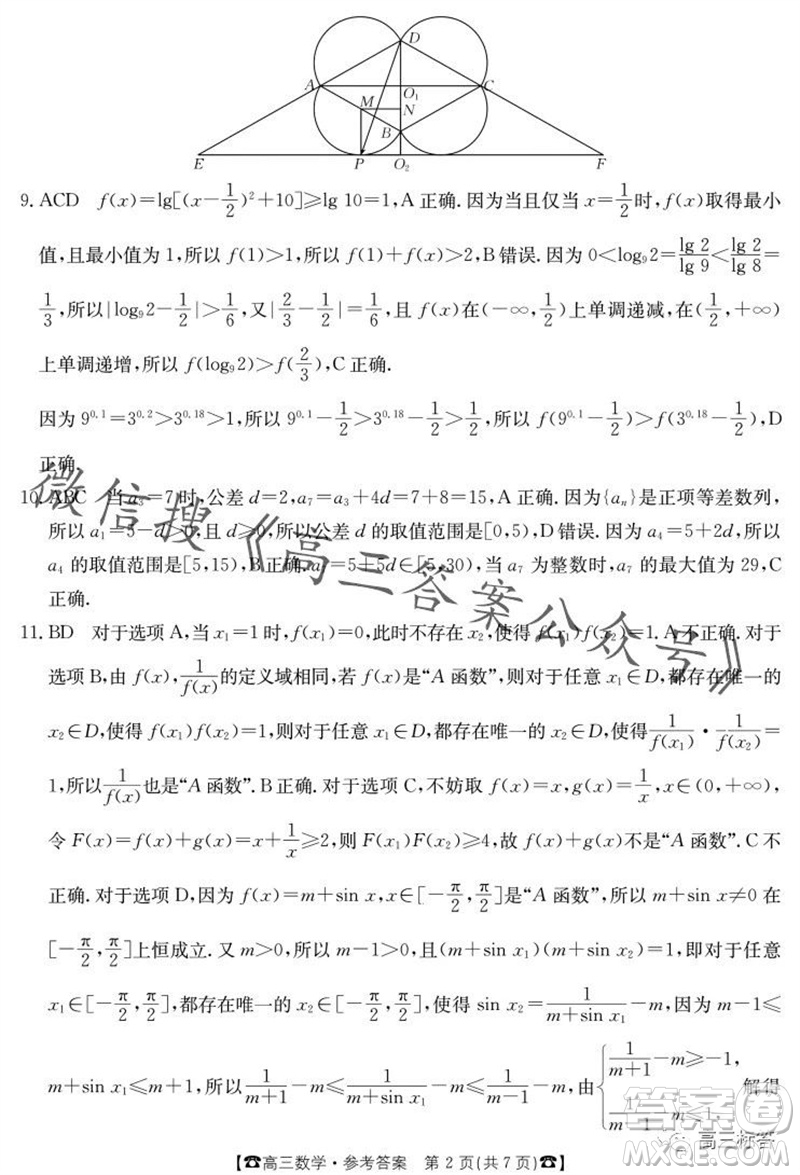 D
A
O₁
C
M
N
B
E
P
O₂
F
9. ACD f(x)=lg[(x-1/2)²+10]≥lg 10=1,A 正确. 因为当且仅当 x=1/2时,f(x)取得最小
值,且最小值为 1,所以 f(1)>1,所以 f(1)+f(x)>2,B 错误. 因为 0<log₉2=lg 2/lg 9<lg 2/lg 8=
1/3,所以|log₉2-1/2|>1/6,又|2/3-1/2|=1/6,且 f(x)在(-∞,1/2)上单调递减,在(1/2,+∞)
上单调递增,所以 f(log₉2)>f(2/3),C 正确.
因为 9^0.1=3^0.2>3^0.18>1,所以 9^0.1-1/2>3^0.18-1/2>1/2,所以 f(9^0.1-1/2)>f(3^0.18-1/2),D
正确.
10. ABC 当 a₃=7 时,公差 d=2,a₇=a₃+4d=7+8=15,A 正确. 因为{aₙ}是正项等差数列,
所以 a₁=5-d>0,且 d≥0,所以公差 d 的取值范围是[0,5),D 错误. 因为 a₄=5+2d,所以
a₄ 的取值范围是[5,15),B 正确. a₇=5+5d∈[5,30),当 a₇ 为整数时,a₇ 的最大值为 29,C
正确.
11. BD 对于选项 A,当 x₁=1 时,f(x₁)=0,此时不存在 x₂,使得 f(x₁)f(x₂)=1. A 不正确. 对于
选项 B,由 f(x),1/f(x)的定义域相同,若 f(x)是“A 函数”,则对于任意 x₁∈D,都存在唯一的
x₂∈D,使得 f(x₁)f(x₂)=1,则对于任意 x₁∈D,都存在唯一的 x₂∈D,使得1/f(x₁)·1/f(x₂)=
1,所以1/f(x)也是“A 函数”. B 正确. 对于选项 C,不妨取 f(x)=x,g(x)=1/x,x∈(0,+∞),
令 F(x)=f(x)+g(x)=x+1/x≥2,则 F(x₁)F(x₂)≥4,故 f(x)+g(x)不是“A 函数”. C 不
正确. 对于选项 D,因为 f(x)=m+sin x,x∈[-π/2,π/2]是“A 函数”,所以 m+sin x≠0 在
[-π/2,π/2]上恒成立. 又 m>0,所以 m-1>0,且(m+sin x₁)(m+sin x₂)=1,即对于任意
x₁∈[-π/2,π/2],都存在唯一的 x₂∈[-π/2,π/2],使得 sin x₂=1/(m+sin x₁)-m,因为 m-1≤
m+sin x₁≤m+1,所以1/(m+1)-m≤1/(m+sin x₁)-m≤1/(m-1)-m,由{1/(m+1)-m≥-1, 1/(m-1)-m≤1, 解得
微信搜《高三答案公众号》
答案圈
高三标答
MXQE.COM
☎高三数学·参考答案 第 2 页(共 7 页)☎